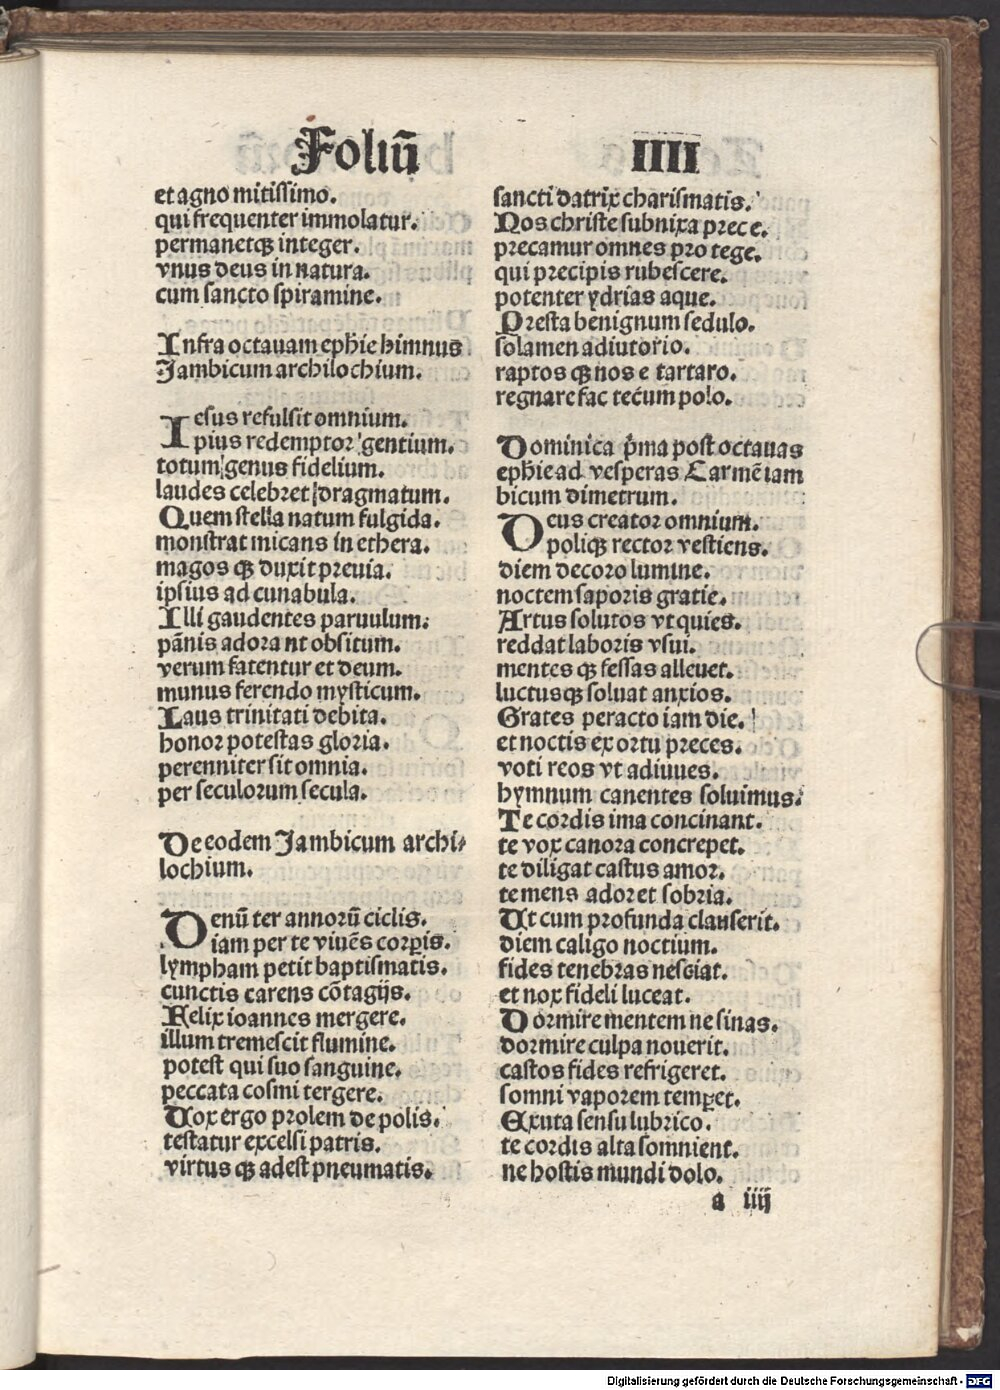 Foliū
IIII
et agno mitissimo.
qui frequenter immolatur.
permanetqꝫ integer.
vnus deus in natura.
cum sancto spiramine.
Infra octauam ephīe himnus
Jambicum archilochium.
Iesus refulsit omnium.
pius redemptor gentium.
totum genus fidelium.
laudes celebret dragmatum.
Quem stella natum fulgida.
monstrat micans in ethera.
magos qꝫ duxit preuia.
ipsius ad cunabula.
Illi gaudentes paruulum.
pānis adorant obsitum.
verum fatentur et deum.
munus ferendo mysticum.
Laus trinitati debita.
honor potestas gloria.
perenniter sit omnia.
per seculorum secula.
De eodem Jambicum archi-
lochium.
Denū ter annorū ciclis.
iam per te viuēs corꝑis.
lympham petit baptismatis.
cunctis carens cōtagijs.
Felix ioannes mergere.
illum tremescit flumine.
potest qui suo sanguine.
peccata cosmi tergere.
Vox ergo prolem de polis.
testatur excelsi patris.
virtus qꝫ adest pneumatis.
sancti datrix charismatis.
Nos christe subnixa prece.
precamur omnes pro tege.
qui precipis rubescere.
potenter ydrias aque.
Presta benignum sedulo.
solamen adiutorio.
raptos qꝫ nos e tartaro.
regnare fac tecum polo.
Dominica p̄ma post octauas
ephīe ad vesperas Carmē iam
bicum dimetrum.
Deus creator omnium.
poliqꝫ rector vestiens.
diem decoro lumine.
noctem saporis gratie.
Artus solutos vt quies.
reddat laboris vsui.
mentes qꝫ fessas alleuet.
luctusqꝫ soluat anxios.
Grates peracto iam die.
et noctis exortu preces.
voti reos vt adiuues.
hymnum canentes soluimus.
Te cordis ima concinant.
te vox canora concrepet.
te diligat castus amor.
te mens adoret sobria.
Ut cum profunda clauserit.
diem caligo noctium.
fides tenebras nesciat.
et nox fideli luceat.
Dormire mentem ne sinas.
dormire culpa nouerit.
castos fides refrigeret.
somni vaporem temꝑet.
Exuta sensu lubrico.
te cordis alta somnient.
ne hostis mundi dolo.
a iiij
Digitalisierung gefördert durch die Deutsche Forschungsgemeinschaft - DFG